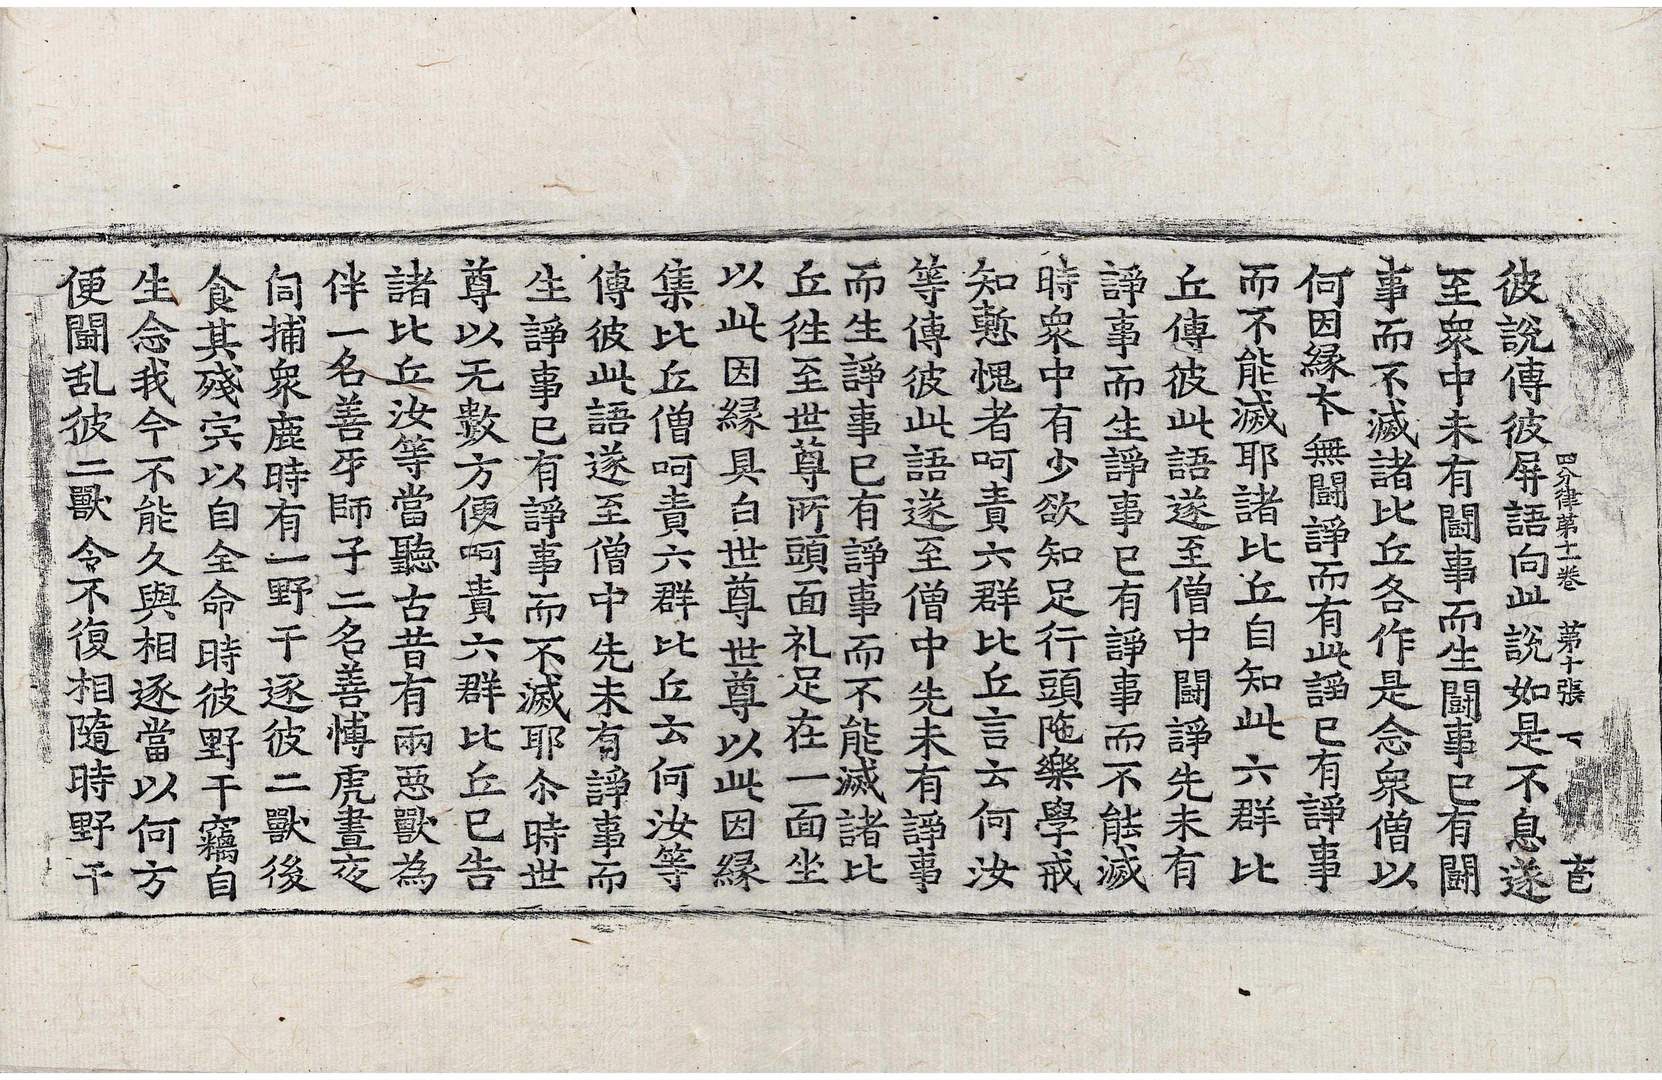 四分律第十一卷 第十張
彼說傳彼屏語向此說如是不息遂
至衆中未有闘事而生闘事已有闘
事而不滅諸比丘各作是念衆僧以
何因縁本無闘諍而有此謟已有諍事
而不能滅耶諸比丘自知此六群比
丘傳彼此語遂至僧中闘諍先未有
諍事而生諍事已有諍事而不能滅
時衆中有少欲知足行頭陁樂學戒
知慙愧者呵責六群比丘言云何汝
等傳彼此語遂至僧中先未有諍事
而生諍事已有諍事而不能滅諸比
丘往至世尊所頭面礼足在一面坐
以此因縁具白世尊世尊以此因縁
集比丘僧呵責六群比丘云何汝等
傳彼此語遂至僧中先未有諍事而
生諍事已有諍事而不滅耶尒時世
尊以无數方便呵責六群比丘已告
諸比丘汝等當聽古昔有兩惡獸為
伴一名善牙師子二名善愽虎晝夜
伺捕衆鹿時有一野干逐彼二獸後
食其殘宍以自全命時彼野干竊自
生念我今不能久與相逐當以何方
便闘乱彼二獸令不復相隨時野干